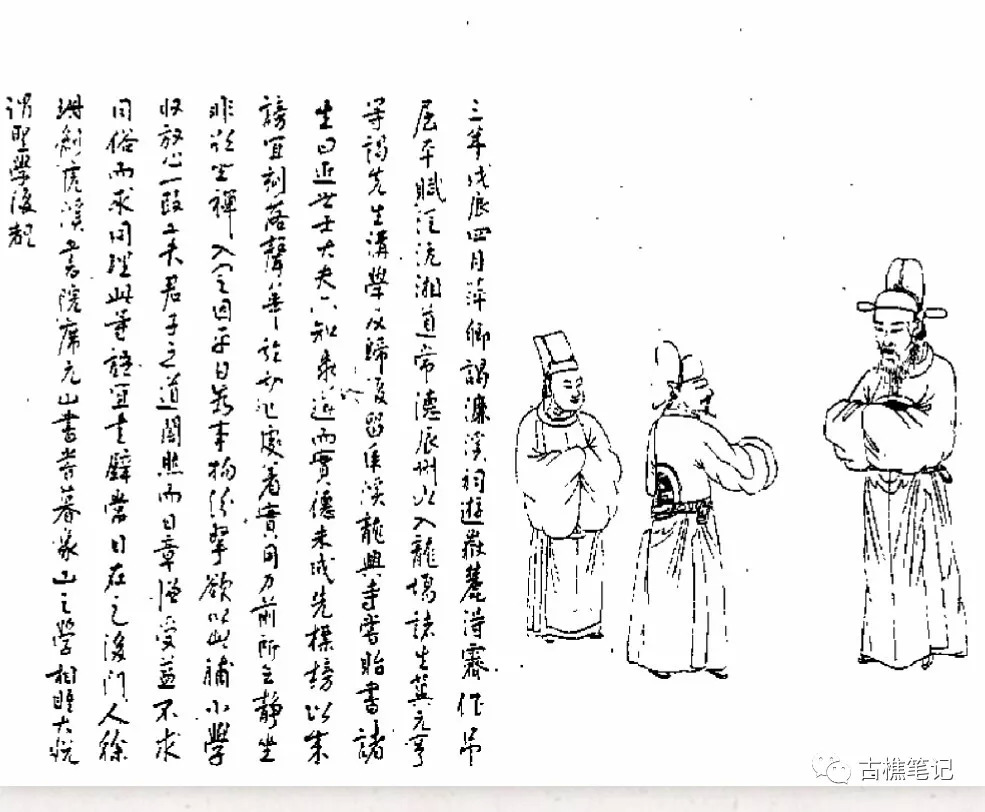 三年戊辰四月萍鄉謁濂溪祠遊嶽麓得霽作吊
屈平賦涉沅湘道常德辰州以入龍場諸生冀元亨
等謁先生講學及歸復留辰溪龍興寺嘗貽書諸
生曰近世士大夫亦知求道而實德未成先標榜以來
謗宜刻落聲華於切己處着實用力前所云靜坐
非欲坐禪入定因平日爲事物紛拏欲以此補小學
收放心一段工夫君子之道闇然而日章謙受益不求
同俗而求同理此等語宜書壁常目在之後門人徐
珊創虎溪書院席元山書嘗慕象山之學相晤大悅
謂聖學復覩
古樵笔记